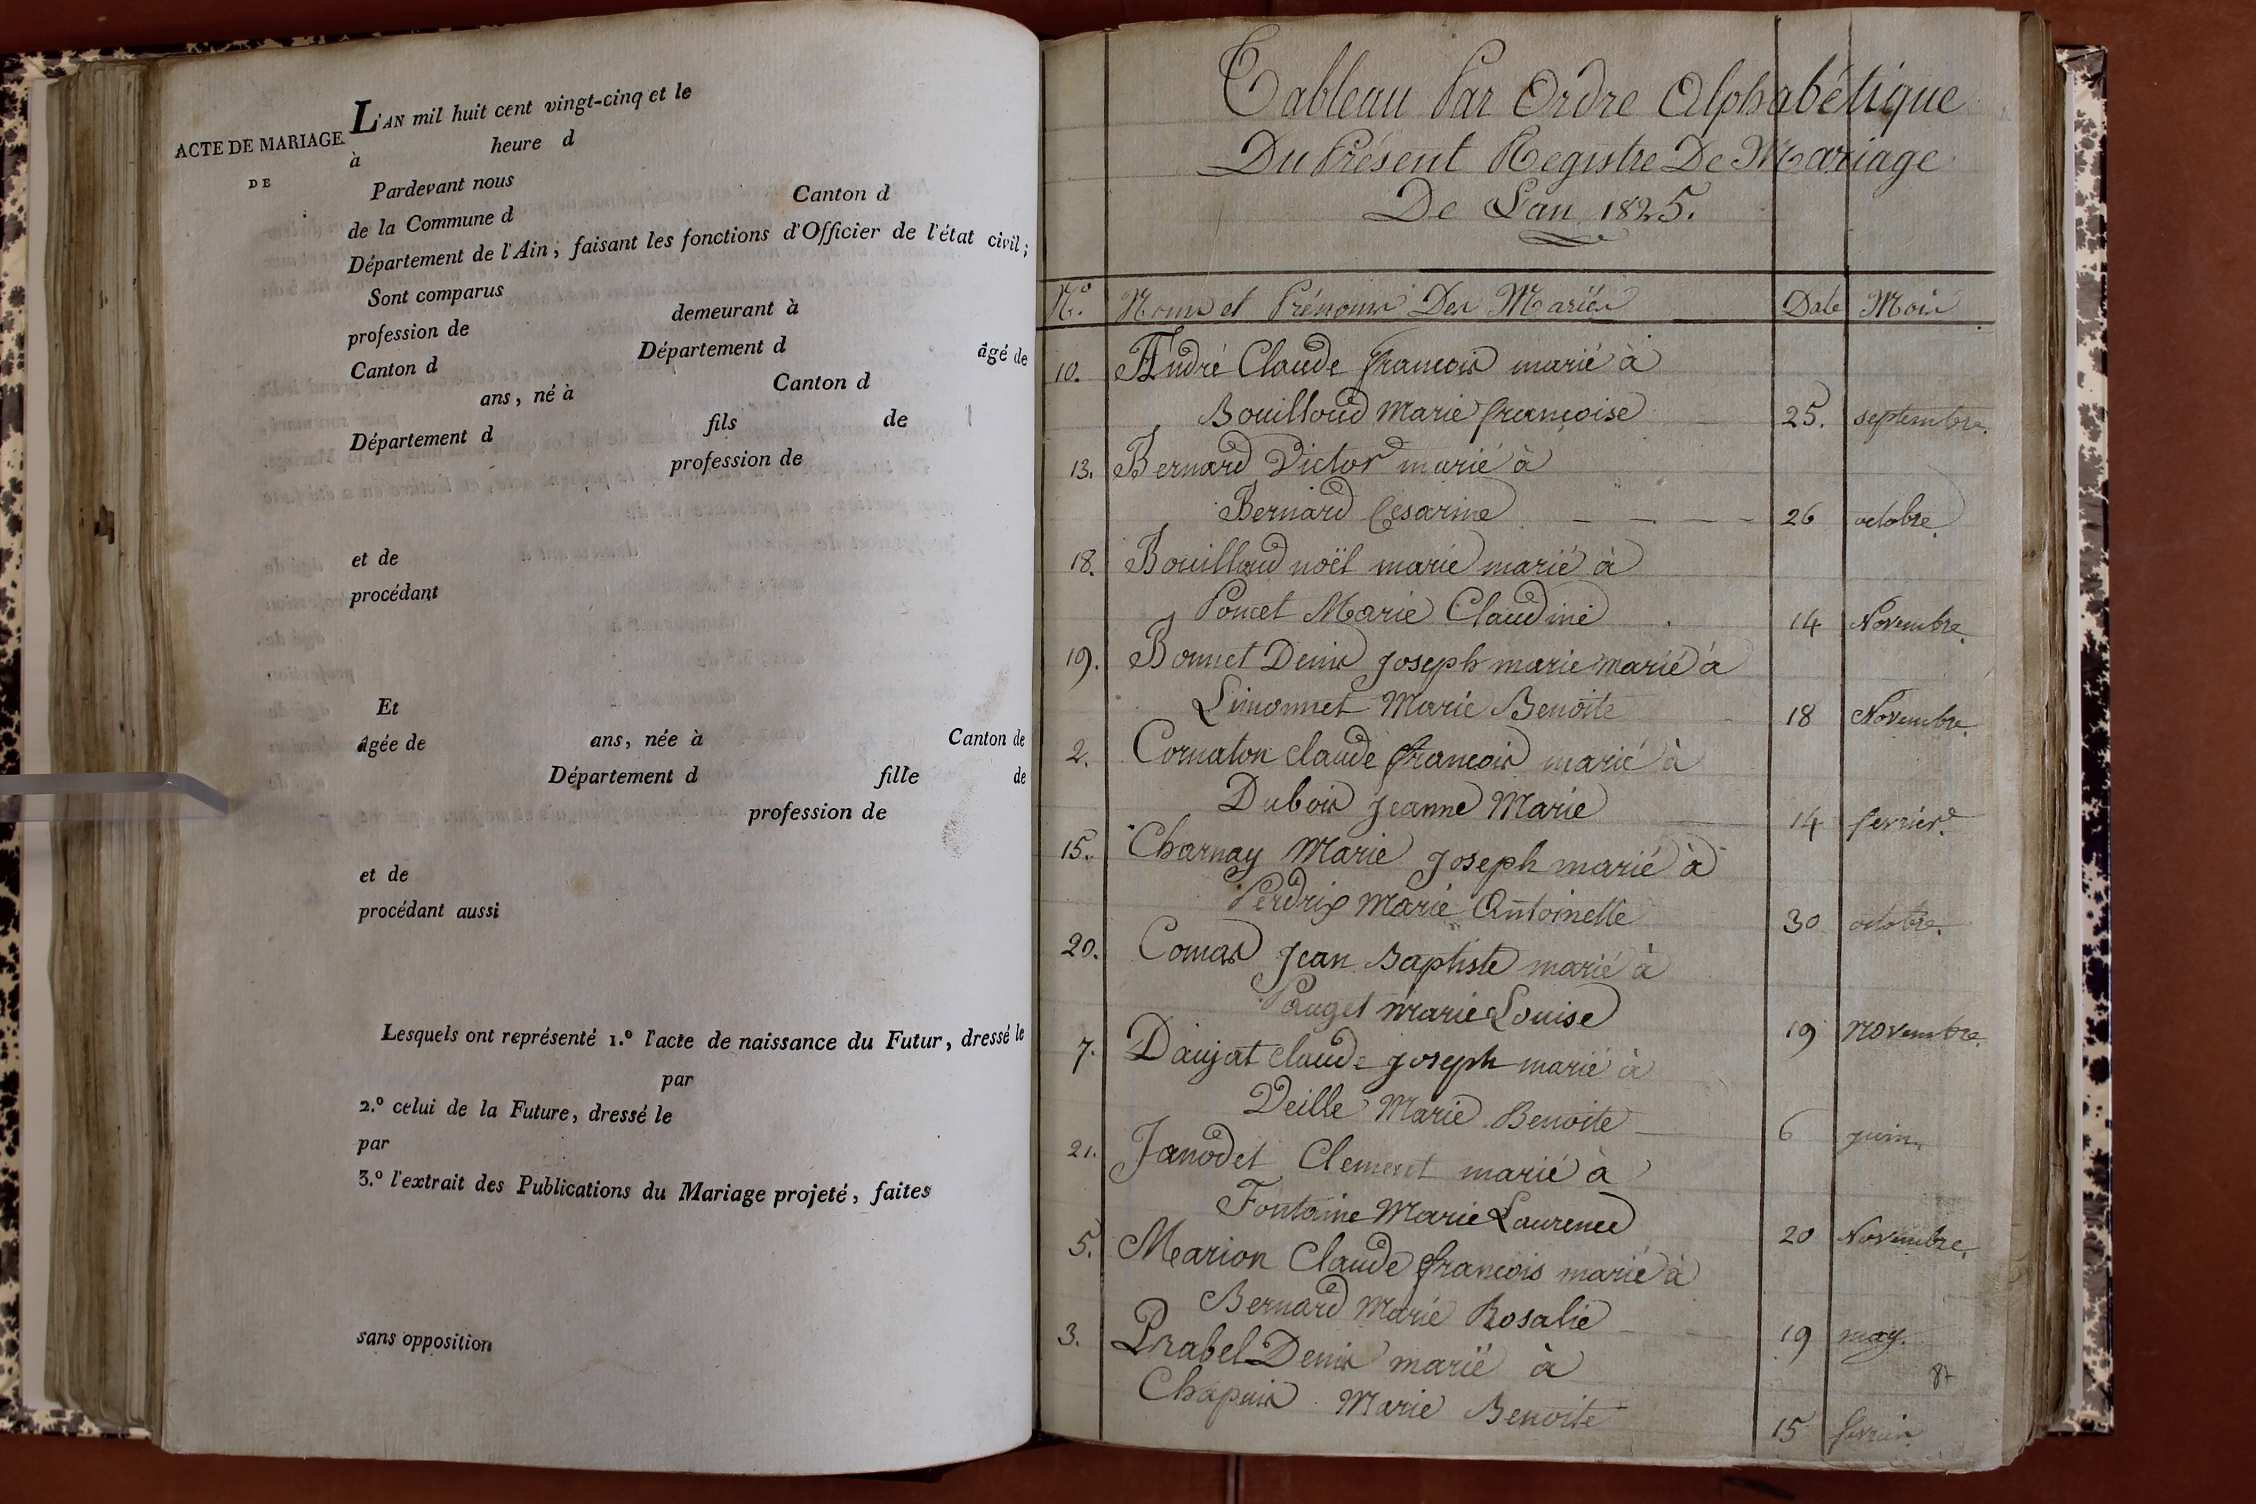 L'AN mil huit cent vingt-cinq et le
ACTE DE MARIAGE
à heure d
DE
Pardevant nous
de la Commune d Canton d
Département de l'Ain, faisant les fonctions d'Officier de l'état civil;
Sont comparus
profession de demeurant à
Canton d Département d âgé de
ans, né à Canton d
Département d fils de
profession de
et de
procédant
Et
âgée de ans, née à Canton de
Département d fille de
profession de
et de
procédant aussi
Lesquels ont représenté 1.º l'acte de naissance du Futur, dressé le
par
2.º celui de la Future, dressé le
par
3.º l'extrait des Publications du Mariage projeté, faites
sans opposition
Tableau Par Ordre Alphabétique
Du Présent Registre De Mariage
De Lan 1825.
N.º Noms et Prénoms Des Mariés Date Mois
10. André Claude françois marié à
Bouilloud Marie françoise 25. septembre.
13. Bernard Victor marié à
Bernard Césarine 26 octobre.
18. Bouilloud noël marie marié à
Poncet Marie Claudine 14 Novembre.
19. Bonnet Denis joseph marie marié à
Limonnet Marie Benoite 18 Novembre.
2. Cornaton claude françois marié à
Dubois jeanne Marie 14 fevrier.
15. Charnay Marie joseph marié à
Perdrix Marie Antoinette 30 octobre.
20. Comas Jean Baptiste marié à
Pauget Marie Louise 19 novembre.
7. Daujat claude joseph marié à
Veille Marie Benoite 6 juin.
21. Janodet Clement marié à
Fontaine Marie Laurence 20 Novembre.
5. Marion Claude françois marié à
Bernard Marie Rosalie 19 may.
3. Prabel Denis marié à
Chapuis Marie Benoite 15 fevrier